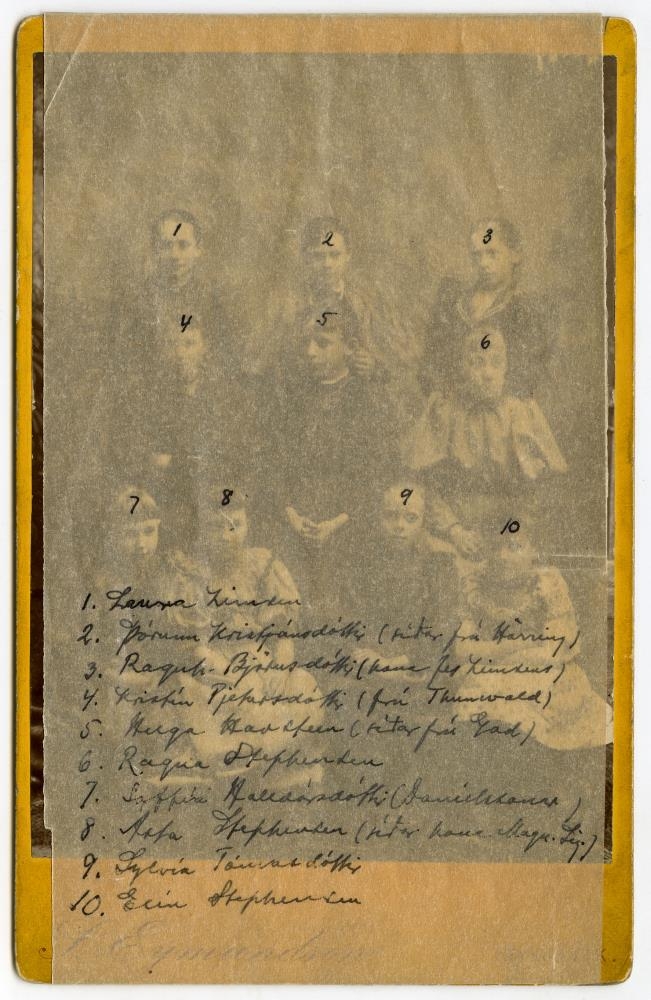 1
2
3
4
5
6
7
8
9
10
1. Laura Zimsen
2. Þórunn Kristjánsdóttir (síðar frú Hörring)
3. Björnsdóttir (kona Zimsens)
4. Kristín Pjetursdóttir (frú Thunwald)
5. Helga Havsteen (síðar frú Gad)
6. Ragna Stephensen
7. Halldórsdóttir (Daníelssonar)
8. Ásta Stephensen (síðar kona Magn. Sig.)
9. Sylvía
10. Elín Stephensen
S. Eymundsson